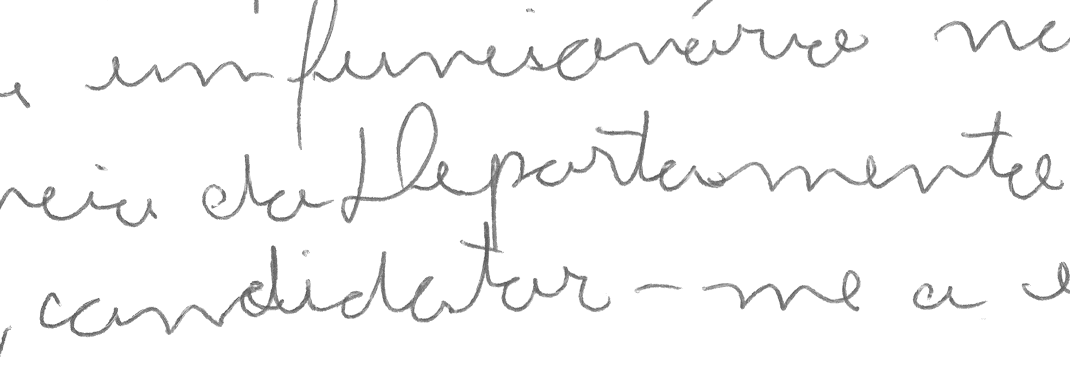 um funcionário
do Departamento
, candidatar-me a